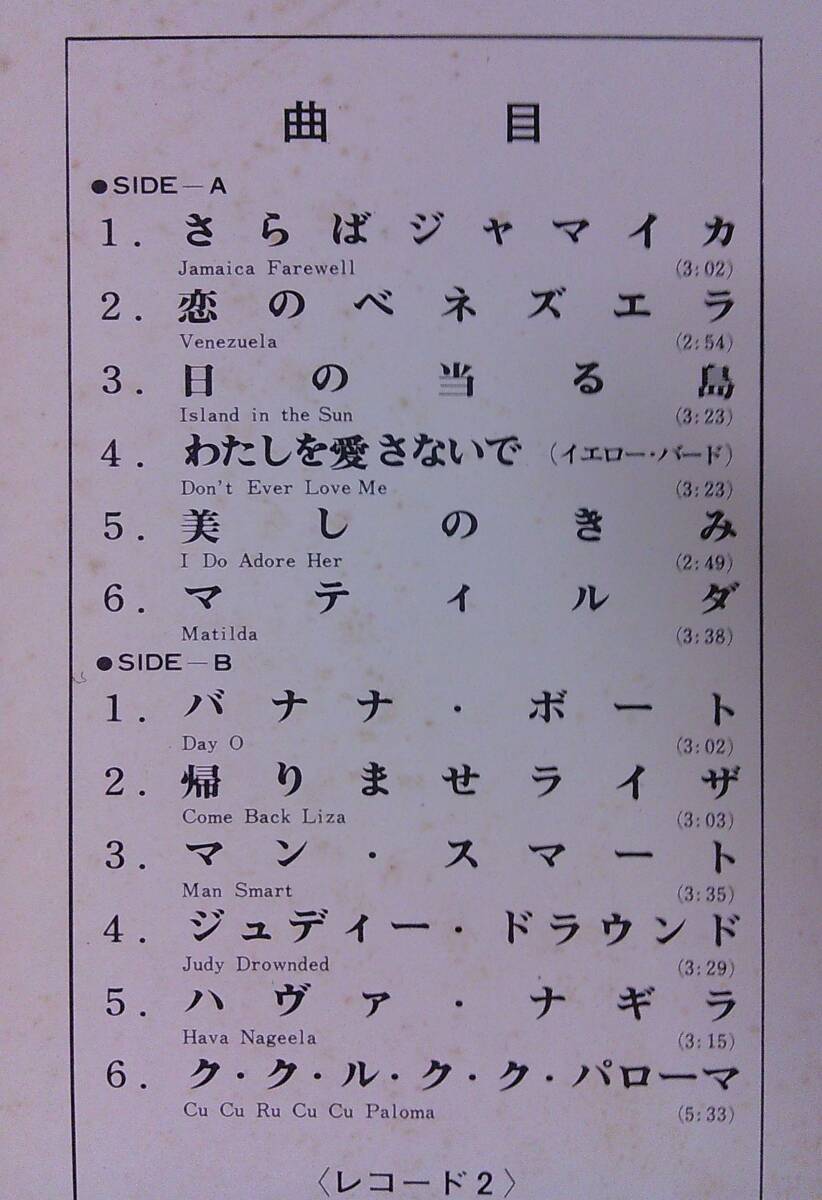 曲目
●SIDE—A
1. さらばジャマイカ
Jamaica Farewell (3:02)
2. 恋のベネズエラ
Venezuela (2:54)
3. 日の当る島
Island in the Sun (3:23)
4. わたしを愛さないで (イエロー・バード)
Don't Ever Love Me (3:23)
5. 美しのきみ
I Do Adore Her (2:49)
6. マティルダ
Matilda (3:38)
●SIDE—B
1. バナナ・ボート
Day O (3:02)
2. 帰りませライザ
Come Back Liza (3:03)
3. マン・スマート
Man Smart (3:35)
4. ジュディー・ドラウンド
Judy Drownded (3:29)
5. ハヴァ・ナギラ
Hava Nageela (3:15)
6. ク・ク・ル・ク・ク・パローマ
Cu Cu Ru Cu Cu Paloma (5:33)
〈レコード2〉